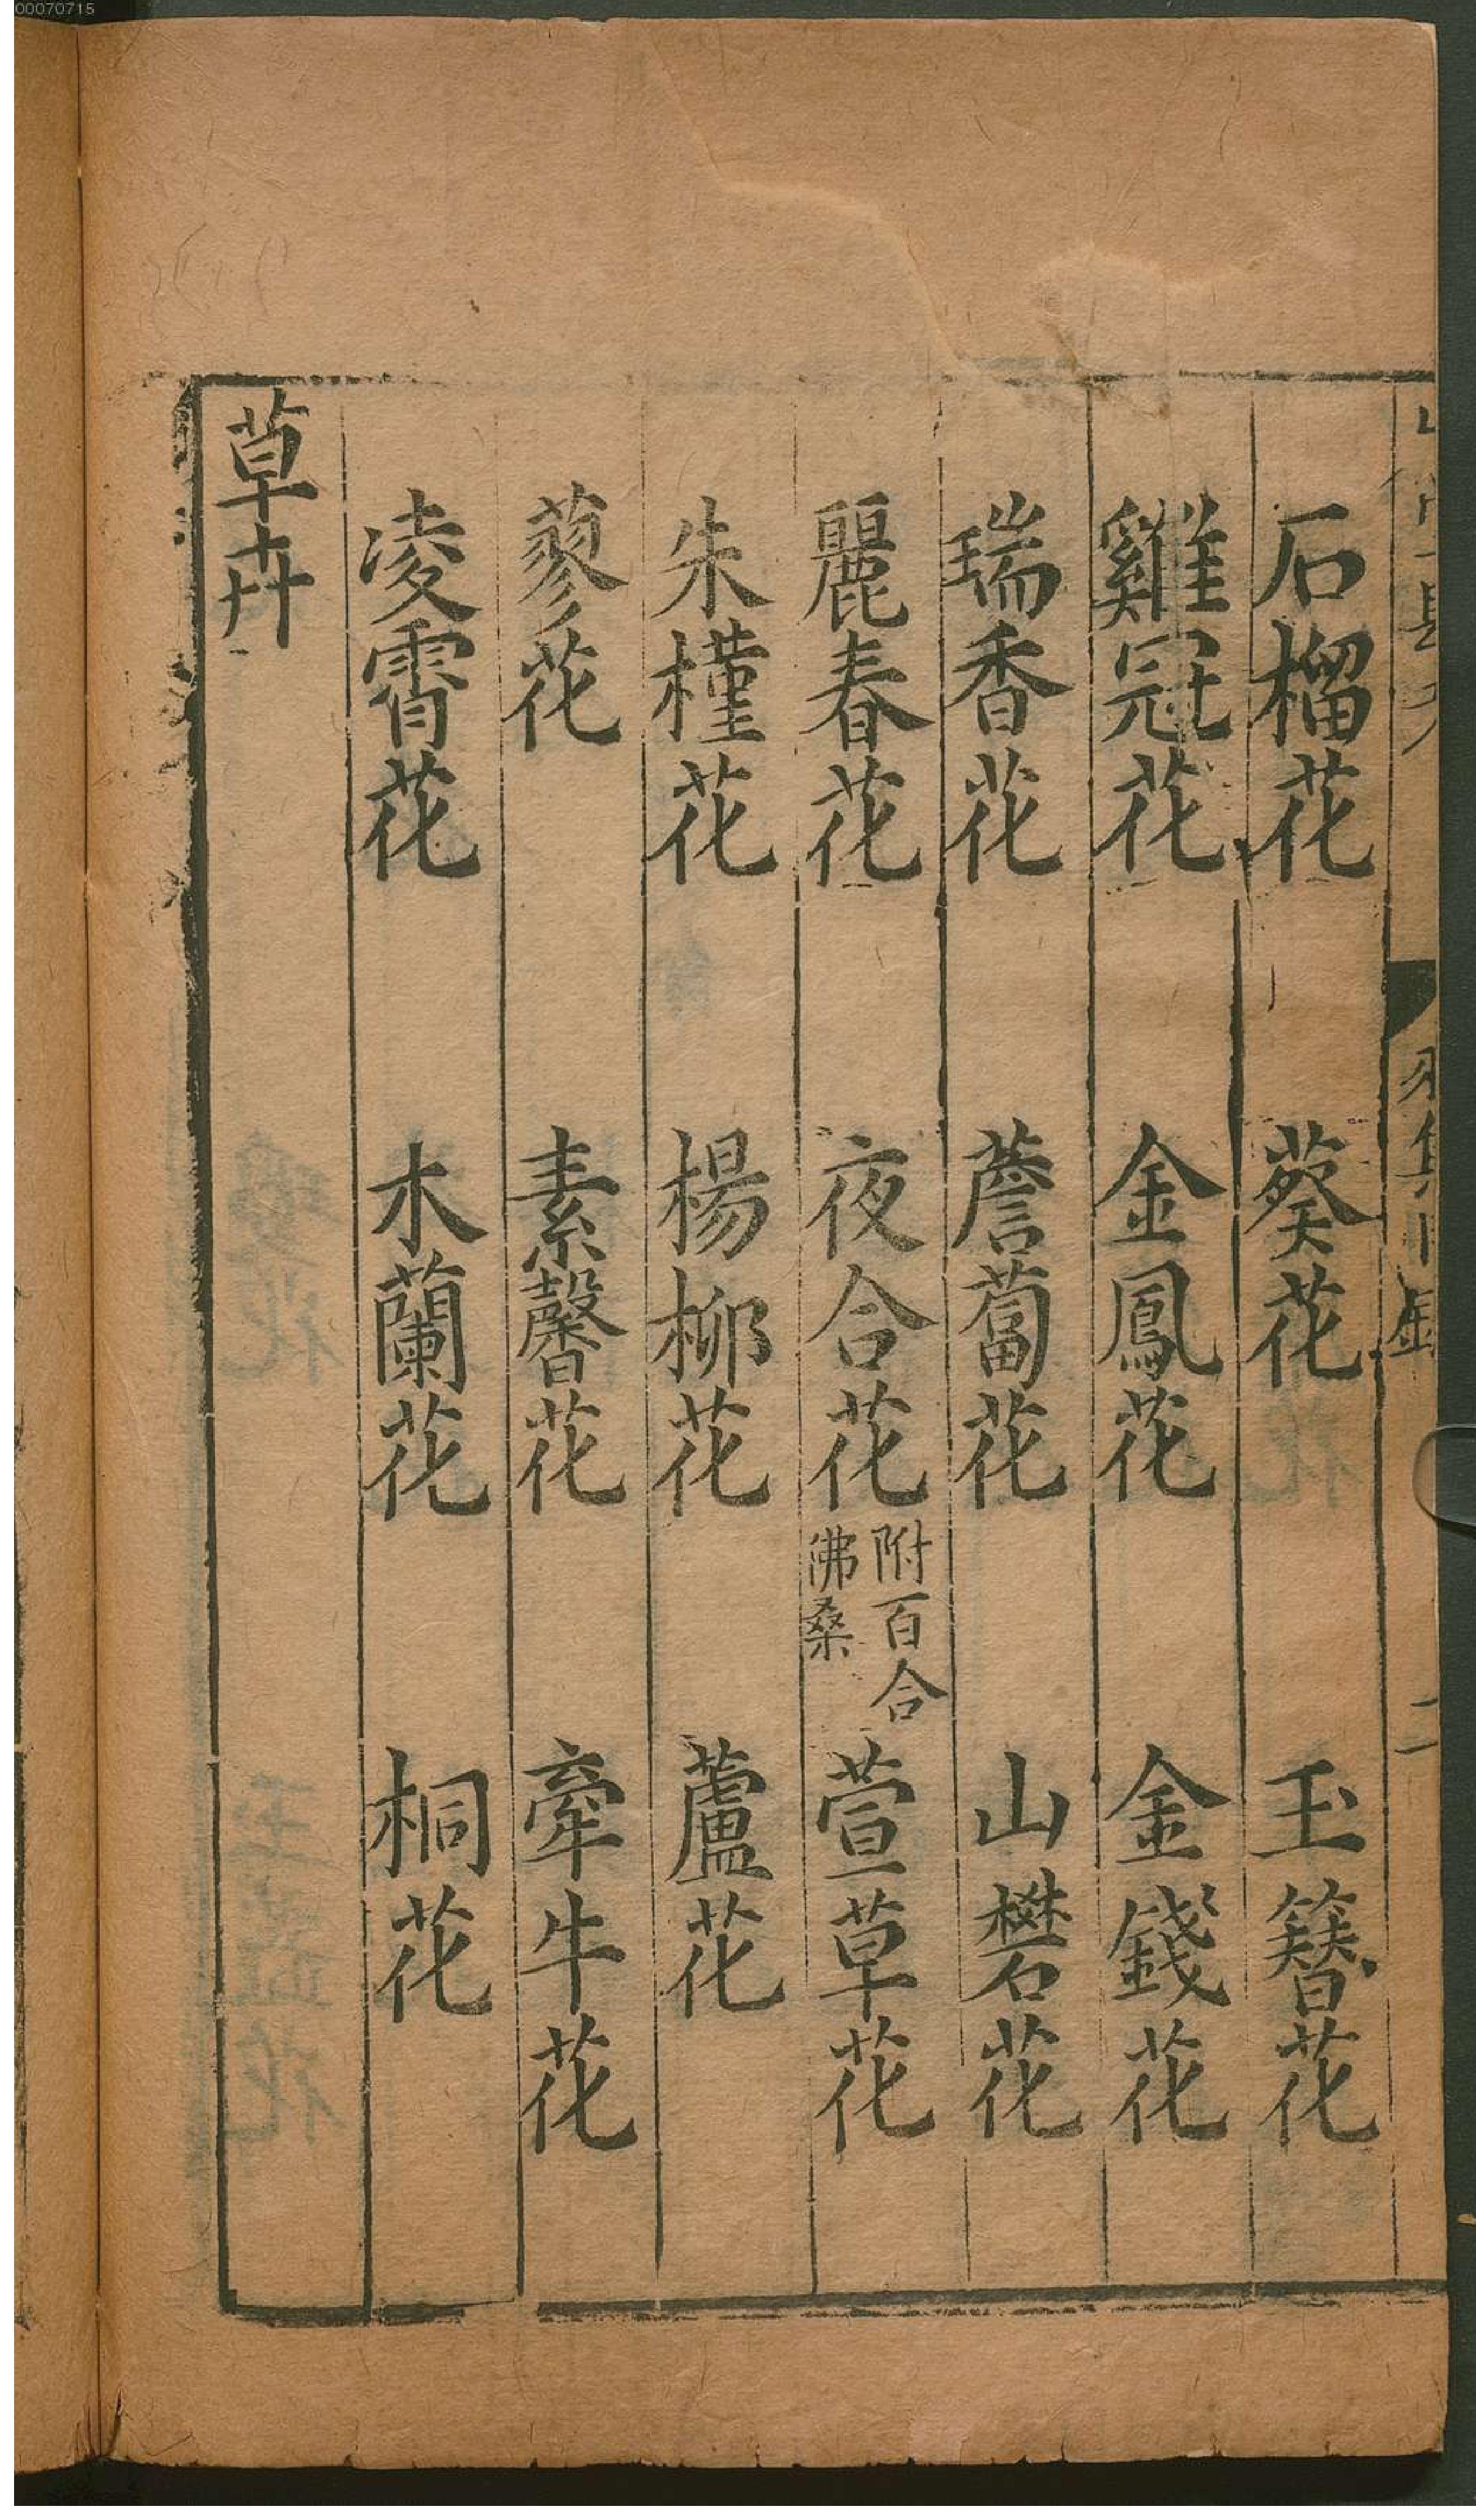 00070715
石榴花　葵花　玉簪花
雞冠花　金鳳花　金錢花
瑞香花　薝蔔花　山礬花
麗春花　夜合花　附百合　佛桑　萱草花
朱槿花　楊柳花　蘆花
蓼花　素馨花　牽牛花
凌霄花　木蘭花　桐花
草卉